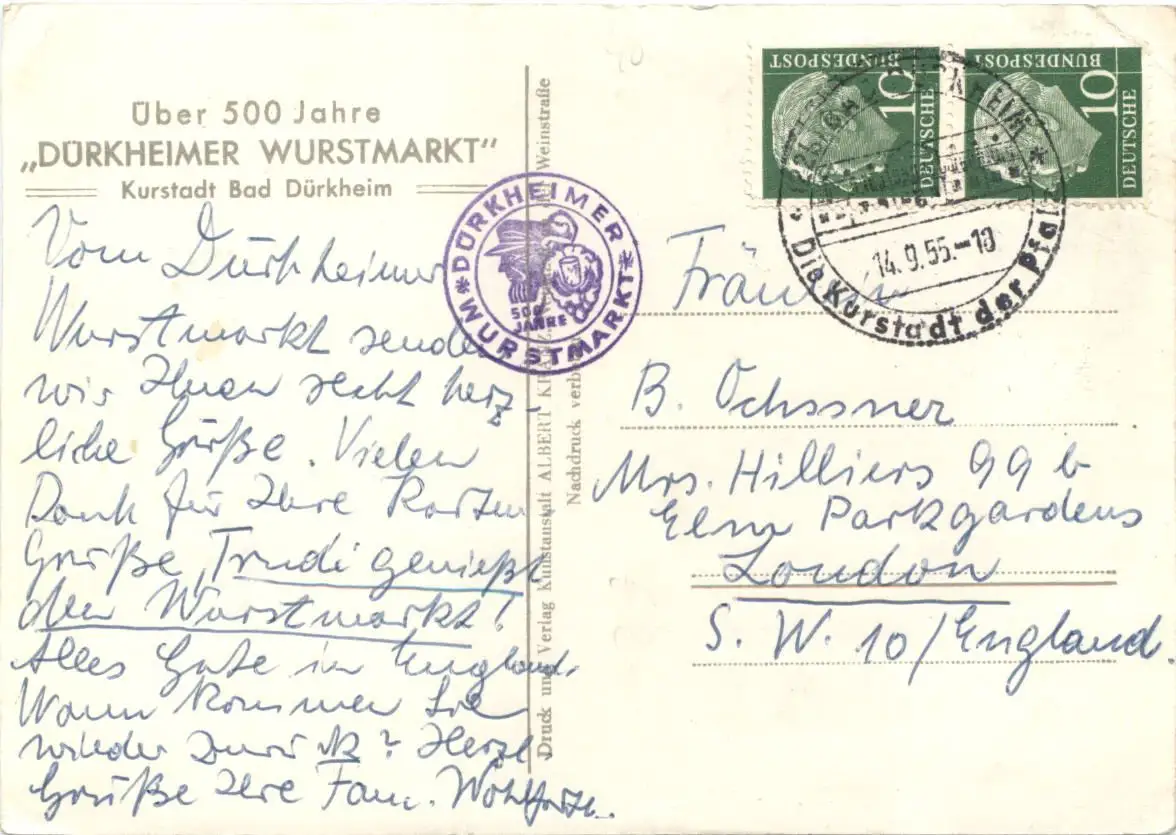 Über 500 Jahre
„DÜRKHEIMER WURSTMARKT"
Kurstadt Bad Dürkheim
Vom Dürkheimer
Wurstmarkt senden
wir Ihnen recht herz-
liche Grüße. Vielen
Dank für Ihre Karten
Grüße, Trudi genießt
den Wurstmarkt!
Alles Gute in England.
Wann kommen Sie
wieder zurück? Herzl.
Grüße Ihre Fam. Wohlfarth.
Druck und Verlag Kunstanstalt ALBERT
Weinstraße
Nachdruck
DÜRKHEIMER
WURSTMARKT
500
JAHRE
10
DEUTSCHE
BUNDESPOST
10
DEUTSCHE
BUNDESPOST
14.9.55.-10
Die Kurstadt der Pfalz
Fräulein
B. Ochssner
Mrs. Hilliers 99 b
Elm Parkgardens
London
S. W. 10/England.